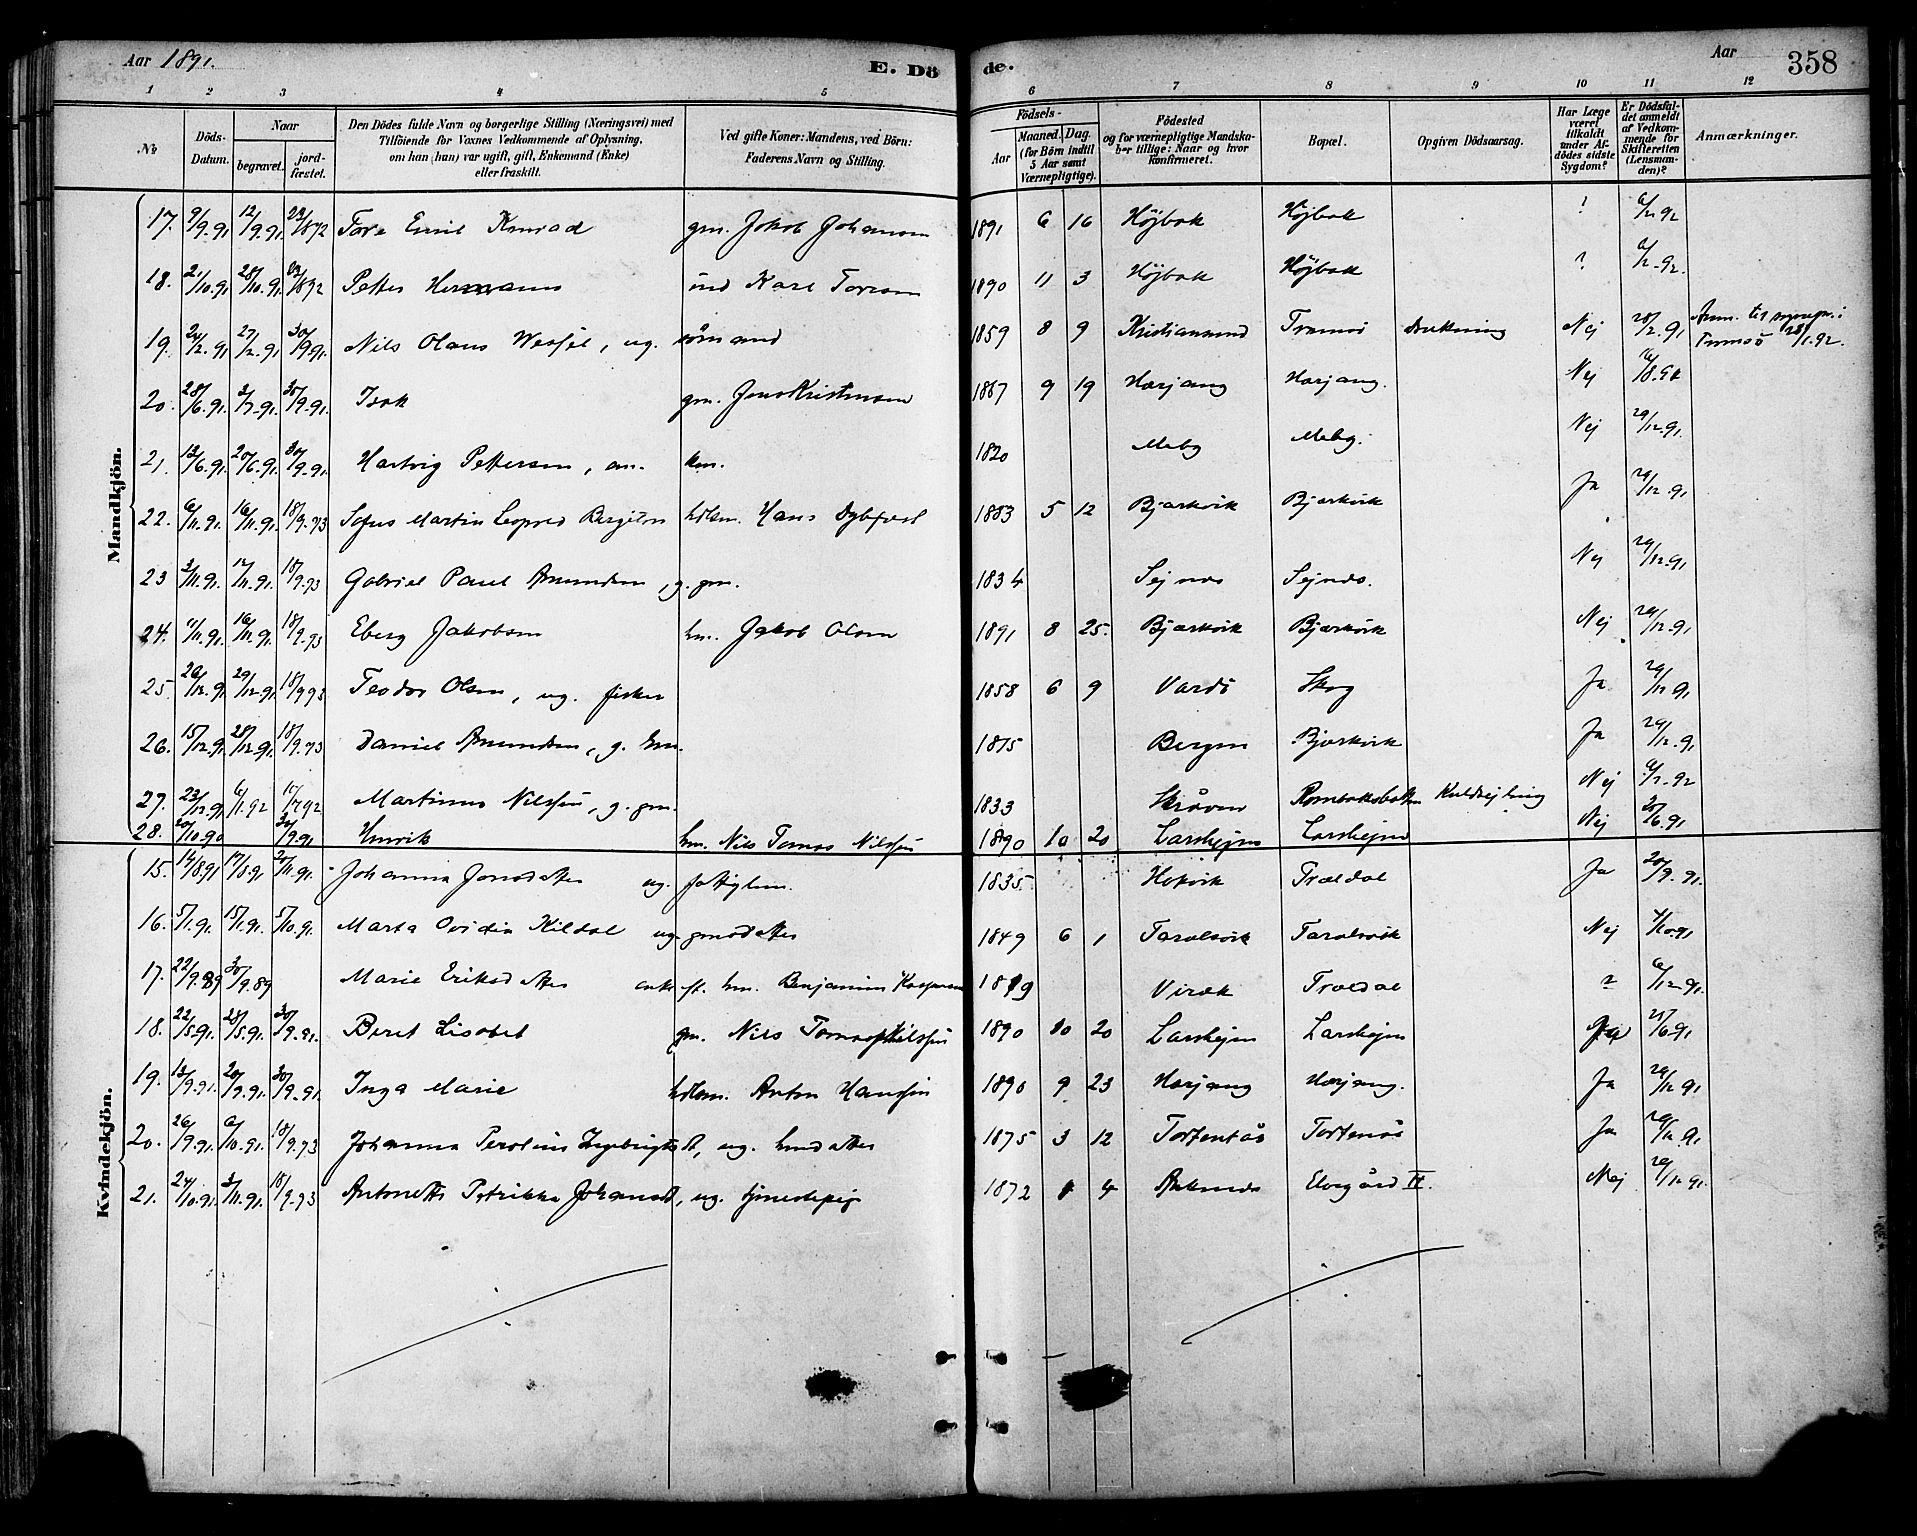 Aar 1891. E. Dö de. Aar 358
1 2 3 4 5 6 7 8 9 10 11 12
No
Döds-Datum.
Naar
begravet.
jordfæstet.
Den Dödes fulde Navn og borgerlige Stilling (Næringsvei) med
Tilföiende for Voxnes Vedkommende af Oplysning,
om han (hun) var ugift, gift, Enkemand (Enke)
eller fraskilt.
Ved gifte Koner: Mandens, ved Börn:
Faderens Navn og Stilling.
Födsels-
Aar
Maaned. Dag.
(for Börn indtil
5 Aar samt
Værnepligtige).
Födested
og for værnepligtige Mandska-
ber tillige: Naar og hvor
konfirmeret.
Bopæl.
Opgiven Dödsaarsag.
Har Læge
været
tilkaldt
under Af-
dödes sidste
Sygdom?
Er Dödsfal-
det anmeldt
af Vedkom-
mende for
Skifteretten
(Lensman-
den)?
Anmærkninger.
Mandkjön.
17. 9/9.91 12/9.91. Tore Emil Konrad gm. Jakob Johansen 1891 6 16 Højbak Højbak ? 6/2 92
18. 21/10.91 28/10.91 Petter Hermann ind Karl Toresen 1890 11 3 Højbak Højbak ?
19. 24/2.91 27/2.91 30/9.91. Nils Olaus Wessel, ug. sømand 1859 8 9 Kristiansund Tromsö Drukning Nej 28/2.91 Anm. til sognepr. i
Tromsö 28/1.92.
20. 28/6.91. 3/7.91. 30/9.91. Isak gm. Jens Kristensen 1887 9 19 Harjang Harjang. Nej
21. 13/6.91. 20/6.91. 30/9.91. Hartvig Pettersen, em. km. 1820 Meby Meby. Nej 29/12.91.
22. 6/11.91. 16/11.91. 18/9.93 Sofus Martin Leopold Bergiton hdlsm. Hans Dybfest 1883 5 12 Bjerkvik Bjerkvik Ja 29/12.91
23 3/11.91. 18/9.93 Gabriel Paul Amundsen, g. gm. 1834 Sejnes Sejnes. Nej 29/12.91
24. 16/11.91. 18/9.93 Eberg Jakobsen hm. Jakob Olsen 1891 8 25. Bjerkvik Bjerkvik Nej 29/12.91
25. 29/12.91. 18/9 93 Teodor Olsen, ug. fisker 1858 6 9 Vardö Skog Ja 29/12.91
26. 15/12.91. 28/12.91. 18/9.93 Daniel Amundsen, g. hm. 1815 Bergen Bjerkvik Ja 29/12.91
27. 23/12.91 6/1.92 Martinus Nilssen, g. gm. 1833 Skråven Rombaksbotn Kuldsejling Nej
28. 20/10.90 30/9.91 Henrik hm. Nils Tomas Nilssen 1890 10 20 Larshejm Larshejm Nej 25/6.91
Kvindekjön.
15. 14/8.91 17/8.91 Johanna Jonsdatter ug. fattiglem. 1835 Hekvik Trældal Ja 20/9.91.
16. 5/1.91. 15/1.91. 5/10.91. Marta Ovidia Kildal ug. gmsdatter 1849 6 1 Taralsvik Taralsvik Nej 4/10 91
17. 22/9.89 30/9.89 Marie Eriksdatter enke ef. hm. Benjamin Kaspersen 1819 Virak Trældal ? 6/12.91.
18. 22/5.91. 28/5.91. 30/9.91. Beret Lisabet gm. Nils Tomas Nilssen 1890 10 20 Larshejm Larshejm Ja 25/6.91
19. 13/9.91. 20/9.91. 30/9.91. Inga Marie hdlsm. Anton Hanssen 1890 9 23 Harjang Harjang. Ja 29/12.91
20. 26/9.91. 6/10.91. 18/9.93 Johanna Peroline Ingebrigtsdt, ug. hmdatter 1875 3 12 Tortenås Tortenås Ja 29/12.91
21. 24/10.91. 3/11.91. 18/9.93 Antonette Petrikke Johansdt, ug. tjenestepig 1872 1 4 Ankenes Elvegård II. Nej 29/12.91.